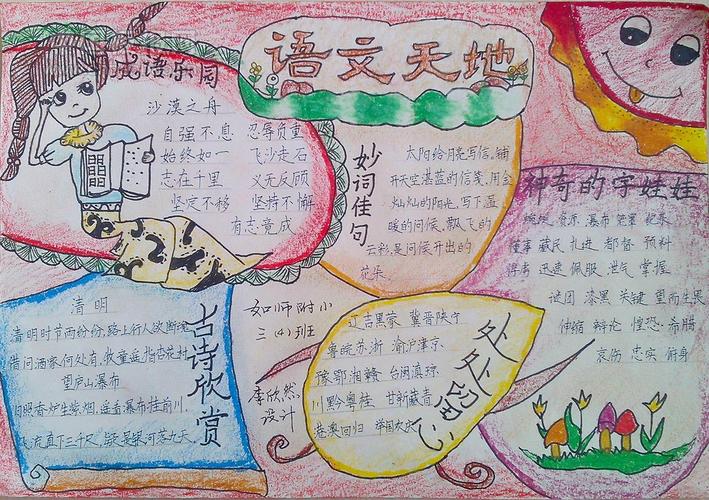 语文天地
成语乐园
沙漠之舟
自强不息 忍辱负重
始终如一 飞沙走石
志在千里 义无反顾
坚定不移 坚持不懈
有志竟成
妙词佳句
太阳给月亮写信。铺
开天空湛蓝的信笺,用金
灿灿的阳光,写下温
暖的问候。飘飞的
云彩,是问候开出的
花朵。
神奇的字娃娃
瀑布 笼罩
董事 藏民 扎进 都督 预料
得寿 迅速 佩服 泄气 掌握
谜团 漆黑 关键 望而生畏
伸缩 辩论 惶恐 希腊
哀伤 忠实 俯身
古诗欣赏
清明
清明时节雨纷纷,路上行人欲断魂。
借问酒家何处有,牧童遥指杏花村。
望庐山瀑布
日照香炉生紫烟,遥看瀑布挂前川。
飞流直下三千尺,疑是银河落九天。
如师附小
三(4)班
李欣然
设计
处处留心
辽吉黑蒙 冀晋陕宁
粤皖苏浙 渝沪津京
豫鄂湘赣 台闽滇琼
川黔粤桂 甘新藏青
港澳回归 举国欢庆